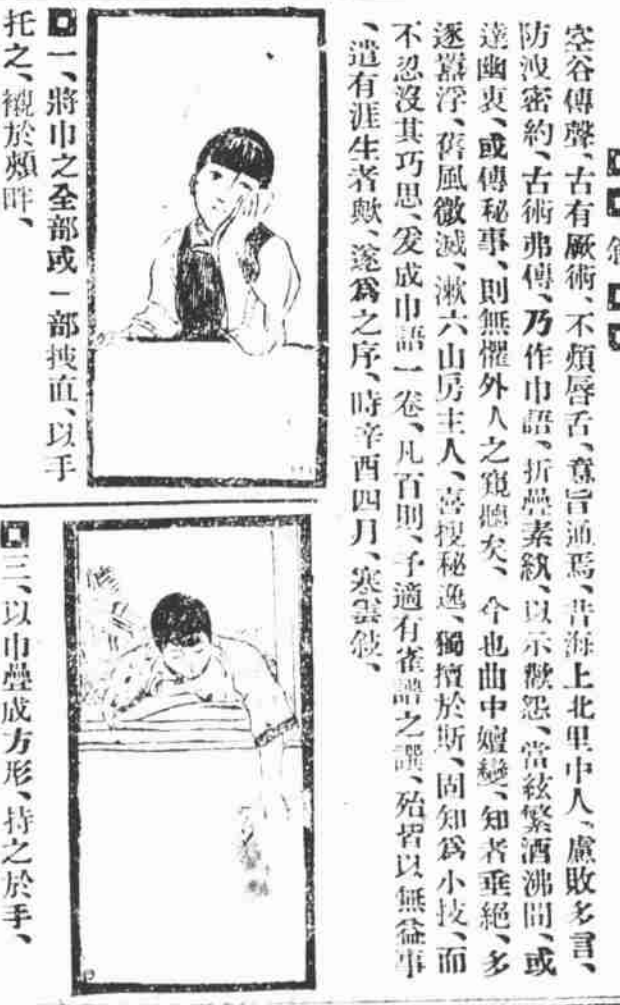 空谷傳聲、古有厥術、不煩唇舌、意旨通焉、昔海上北里中人、慮敗多言、
防洩密約、古術弗傳、乃作巾語、折疊素紈、以示歡怨、當絃繁酒沸間、或
達幽衷、或傳秘事、則無懼外人之窺聽矣、今也曲中嬗變、知者垂絕、多
逐囂浮、舊風微滅、漱六山房主人、喜搜秘逸、獨擅於斯、固知爲小技、而
不忍沒其巧思、爰成巾語一卷、凡百則、予適有雀譜之譔、殆皆以無益事
、遣有涯生者歟、遂爲之序、時辛酉四月、寒雲敍、
一、將巾之全部或一部拽直、以手
托之、襯於頰畔、
三、以巾疊成方形、持之於手、